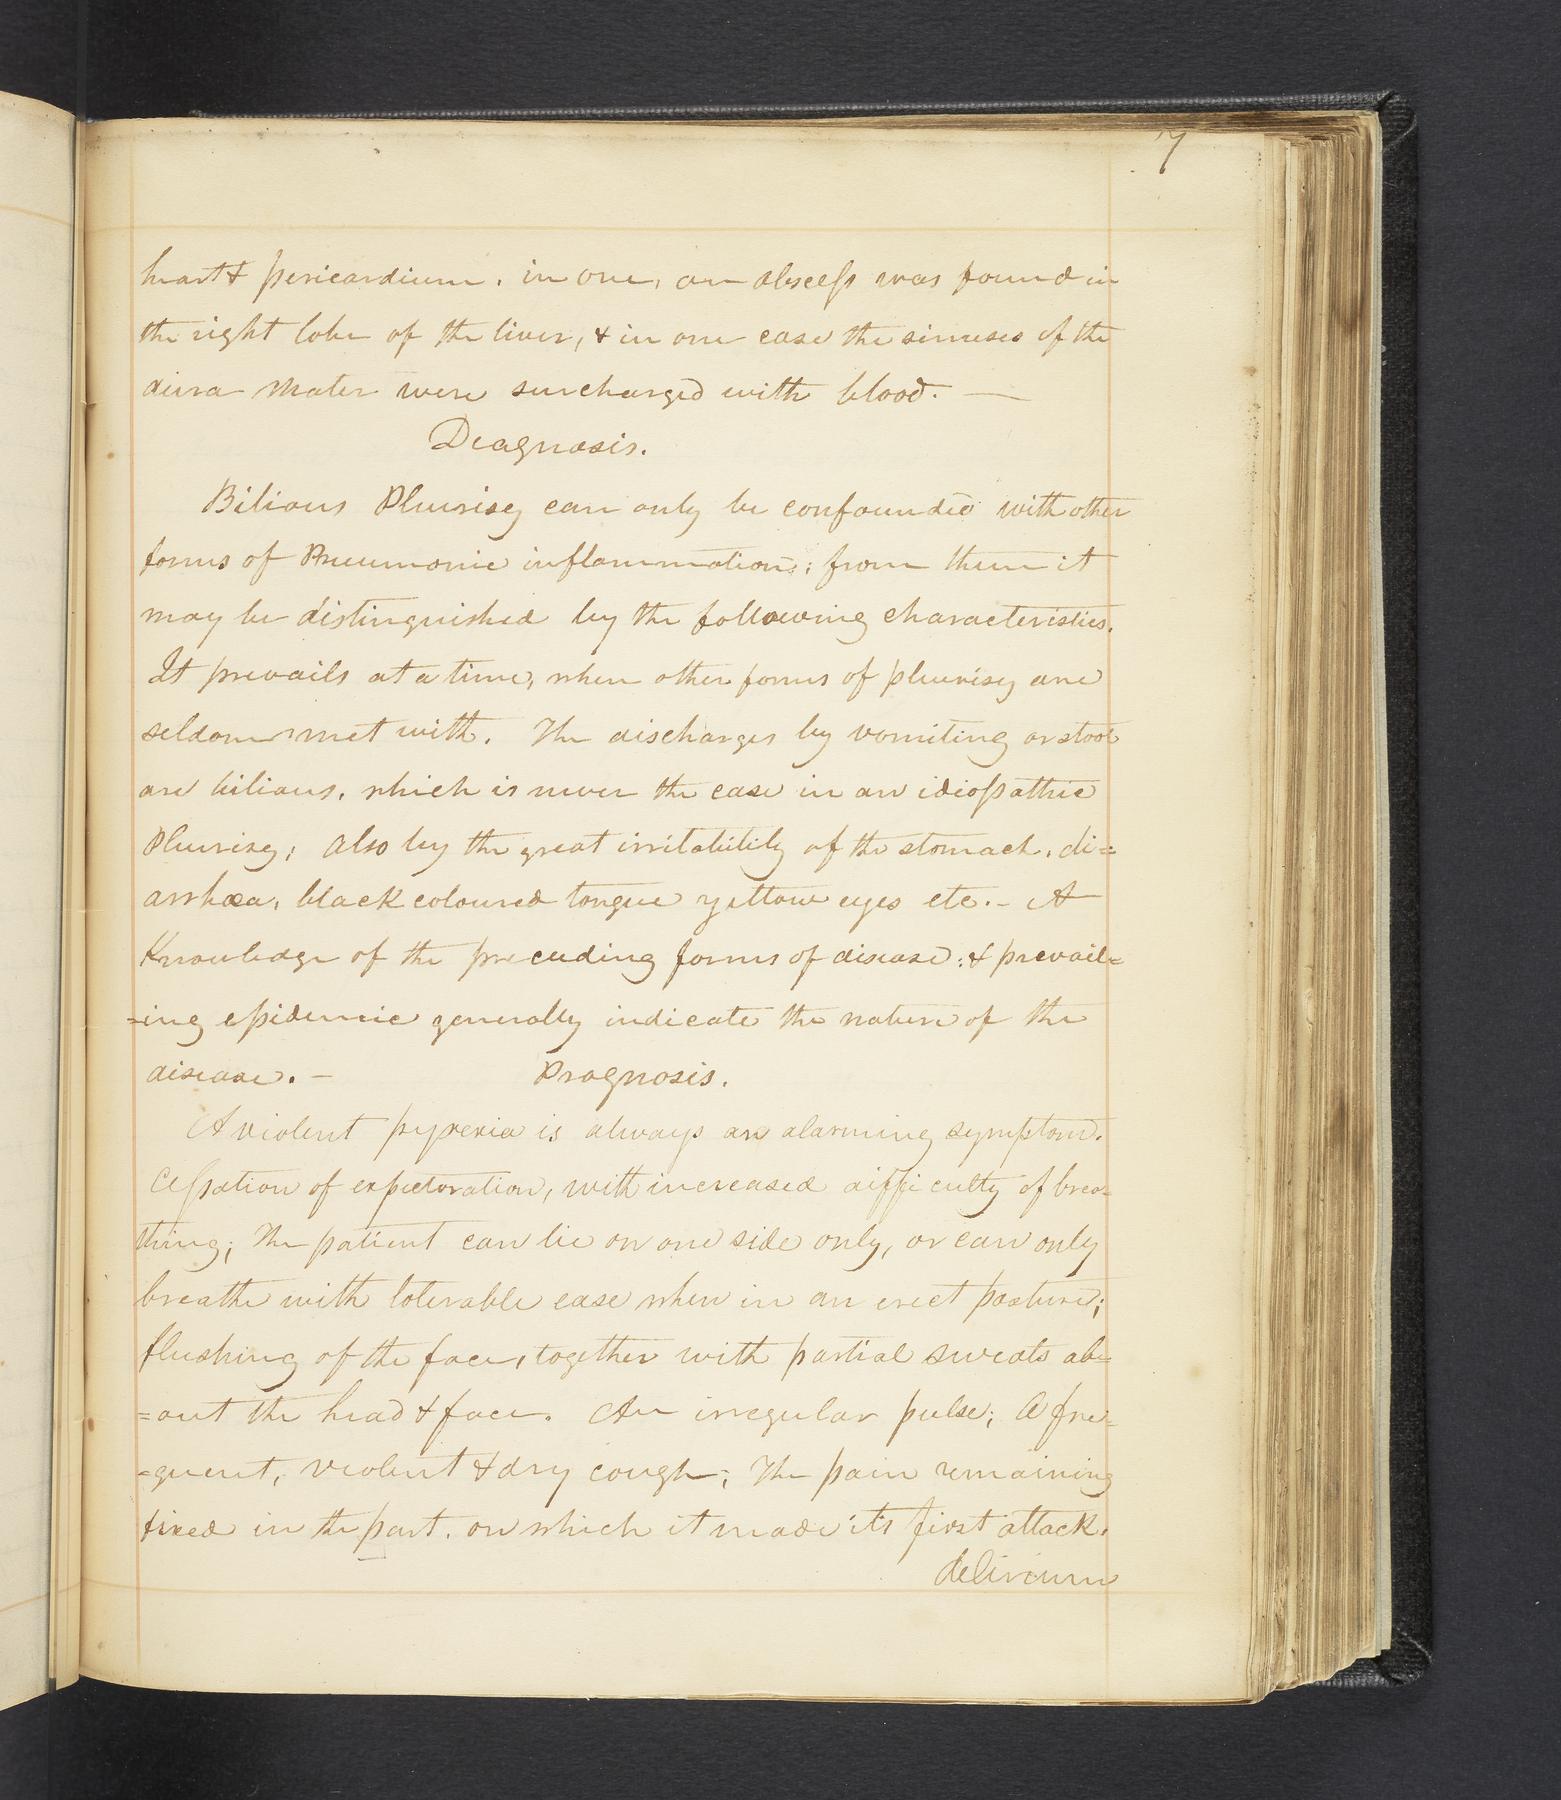 7
heart & pericardium. in one, an abscess was found in
the right lobe of the liver, & in one case the sinuses of the
dura mater were surcharged with blood. —
Deagnosis.
Bilious Pleurisy can only be confounded with other
forms of Pneumonic inflammation; from them it
may be distinguished by the following characteristics.
It prevails at a time, when other forms of pleurisy are
seldom met with. The discharges by vomiting or stool
are bilious, which is never the case in an idiopathic
Pleurisy; also by the great irritability of the stomach, di=
arrhœa, black coloured tongue yellow eyes etc. - A
Knowledge of the preceeding forms of disease; & prevail=
=ing epidemic generally indicate the nature of the
disease. — Prognosis.
A violent pyrexia is always an alarming symptom.
Cessation of expectoration, with increased difficulty of brea-
thing; The patient can lie on one side only, or can only
breathe with tolerable ease when in an erect posture;
flushing of the face, together with partial sweats ab=
=out the head & face. An irregular pulse; A fre-
=quent, violent & dry cough; The pain remaining
fixed in the part, on which it made it's first attack.
delirium